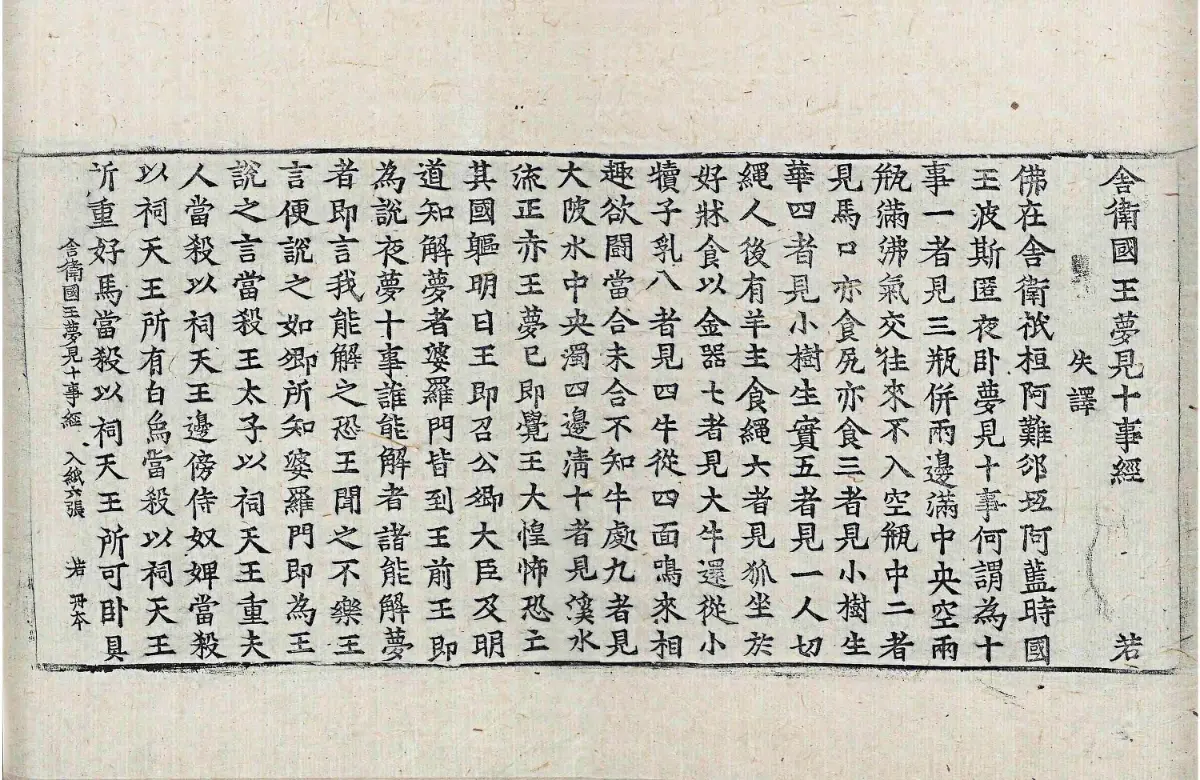 舍衛國王夢見十事經 若
失譯
佛在舍衛祇桓阿難邠坻阿藍時國
王波斯匿夜卧夢見十事何謂為十
事一者見三瓶併兩邊滿中央空兩
瓶滿沸氣交往來不入空瓶中二者
見馬口亦食尻亦食三者見小樹生
華四者見小樹生實五者見一人切
繩人後有羊主食繩六者見狐坐於
好牀食以金器七者見大牛還從小
犢子乳八者見四牛從四面鳴來相
趣欲鬪當合未合不知牛處九者見
大陂水中央濁四邊清十者見溪水
流正赤王夢已即覺王大惶怖恐亡
其國軀明日王即召公卿大臣及明
道知解夢者婆羅門皆到王前王即
為說夜夢十事誰能解者諸能解夢
者即言我能解之恐王聞之不樂王
言便說之如卿所知婆羅門即為王
說之言當殺王太子以祠天王重夫
人當殺以祠天王邊傍侍奴婢當殺
以祠天王所有白烏當殺以祠天王
所重好馬當殺以祠天王所可卧具
舍衛國王夢見十事經 入紙六張 若 冊本